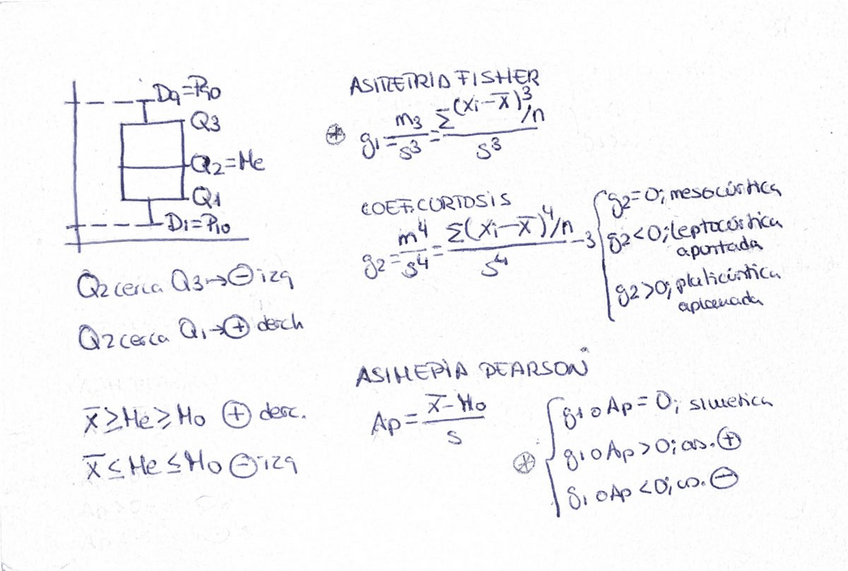 D9=P90
Q3
Q2=Me
Q1
D1=P10
Q2 cerca Q3→⊖ izq
Q2 cerca Q1→⊕ derch
x̄≥Me≥Mo ⊕ desc.
x̄≤Me≤Mo ⊖ izq
ASIMETRIA FISHER
⊛ g1=m3/s3=Σ(xi-x̄)^3/n/s^3
COEF.CURTOSIS
g2=m^4/s^4=Σ(xi-x̄)^4/n/s^4-3
g2=0; mesocúrtica
g2<0; leptocúrtica
apuntada
g2>0; platicúrtica
aplanada
ASIMEPIA PEARSON
Ap=x̄-Mo/s
⊛
g1 o Ap=0; simetica
g1 o Ap>0; as.⊕
g1 o Ap<0; as.⊖